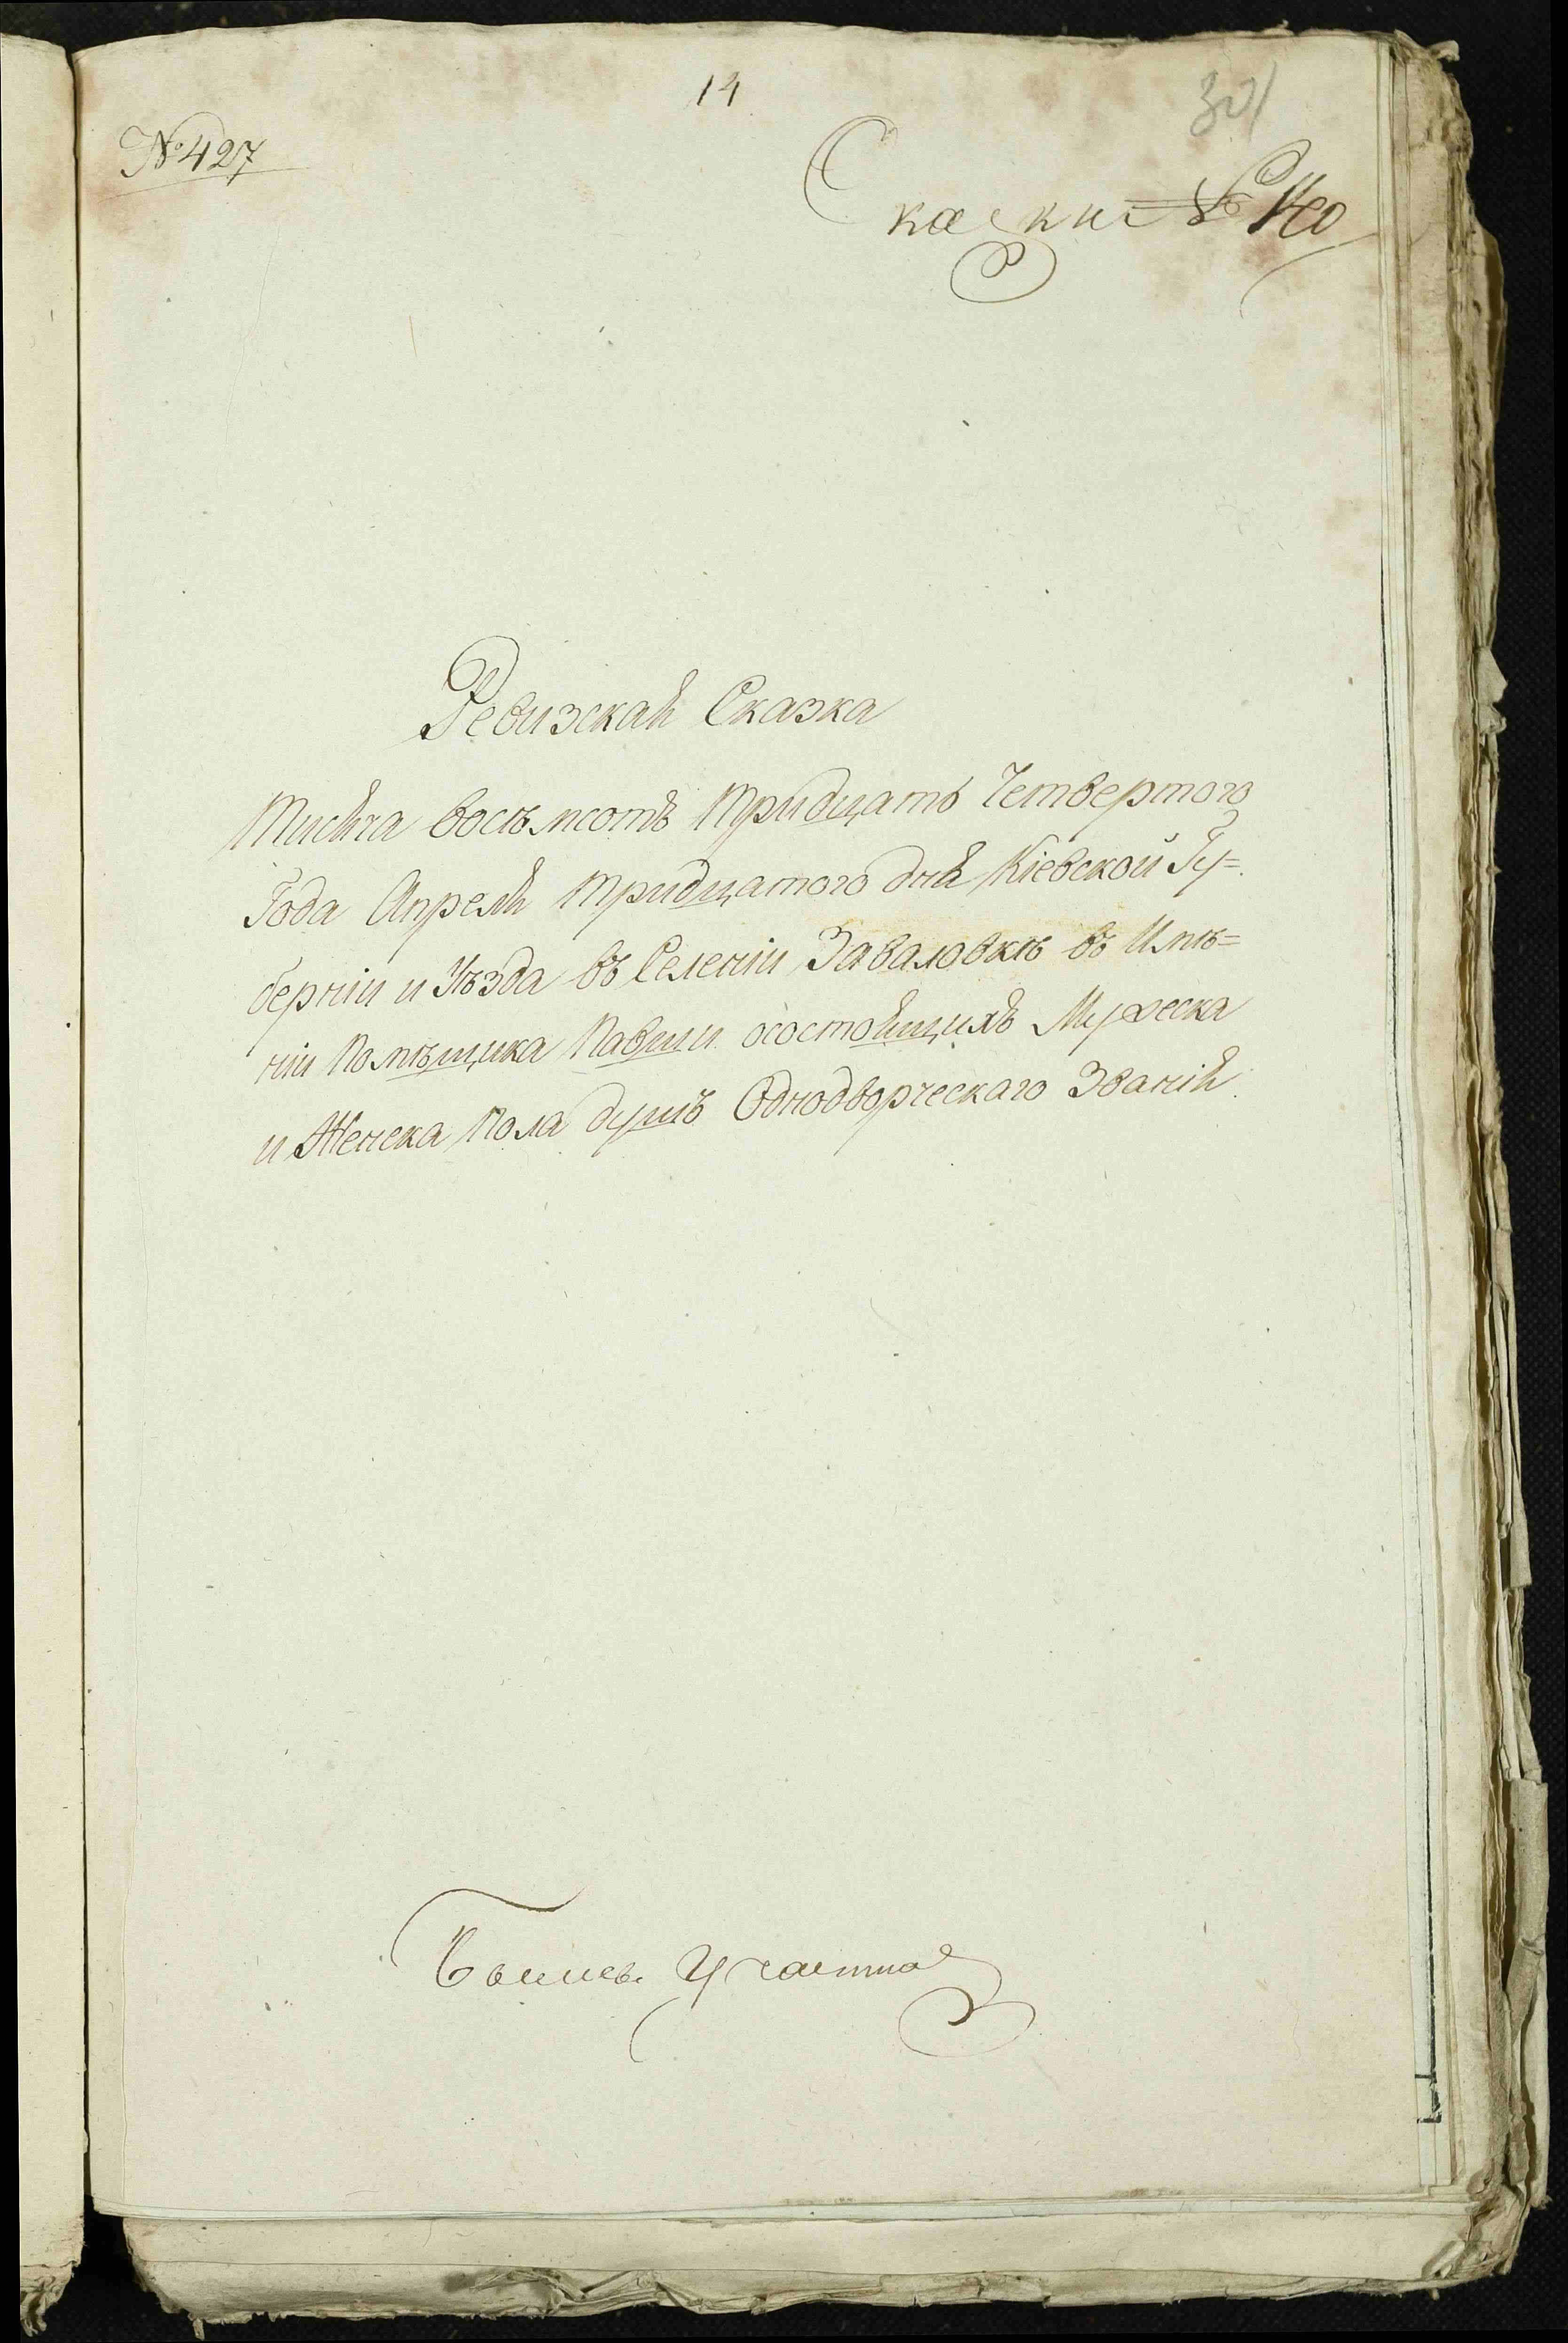 14
301
№ 427
Сказки
Ревизская Сказка
Тисяча восѣмсотъ Тридцать Четвертого
Года Апреля тридцатого дня Кіевской Гу=
берніи и Уѣзда въ Селеніи Заваловкѣ въ Имѣ=
ніи Помѣщика Павши осостоящихъ Мужеска
и Женска пола душъ Однодворческаго Званія.